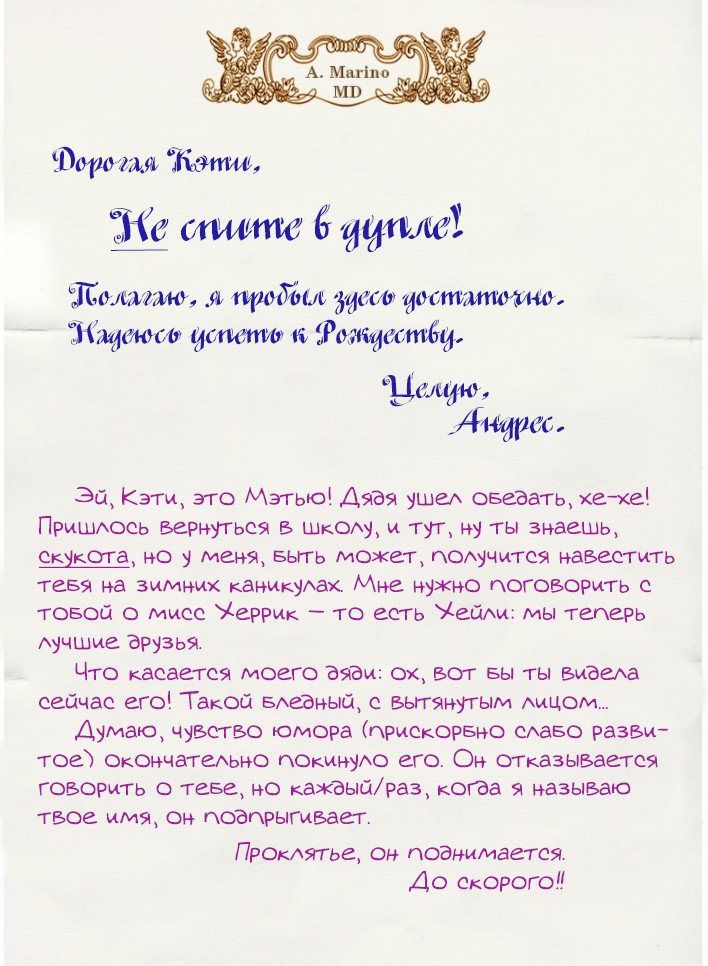 A. Marino
MD
Дорогая Кэти,
Не спите в дупле!
Полагаю, я пробыл здесь достаточно.
Надеюсь успеть к Рождеству.
Целую,
Андрес.
Эй, Кэти, это Мэтью! Дядя ушел обедать, хе-хе!
Пришлось вернуться в школу, и тут, ну ты знаешь,
скукота, но у меня, быть может, получится навестить
тебя на зимних каникулах. Мне нужно поговорить с
тобой о мисс Херрик – то есть Хейли: мы теперь
лучшие друзья.
Что касается моего дяди: ох, вот бы ты видела
сейчас его! Такой бледный, с вытянутым лицом...
Думаю, чувство юмора (прискорбно слабо разви-
тое) окончательно покинуло его. Он отказывается
говорить о тебе, но каждый/раз, когда я называю
твое имя, он подпрыгивает.
Проклятье, он поднимается.
До скорого!!